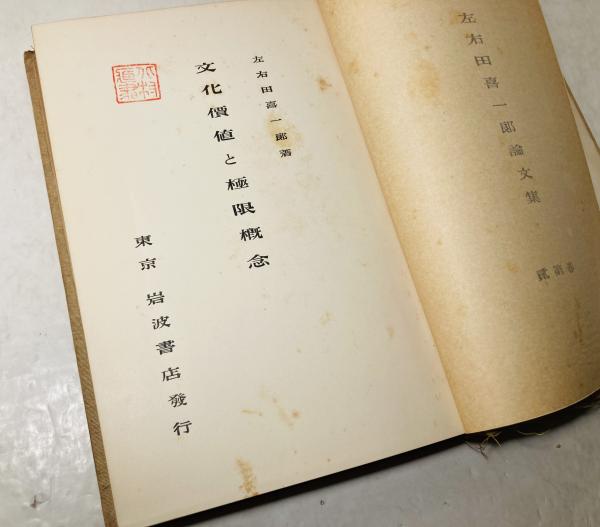 左右田喜一郎論文集
第貳卷
左右田喜一郎著
文化價値と極限概念
東京 岩波書店發行